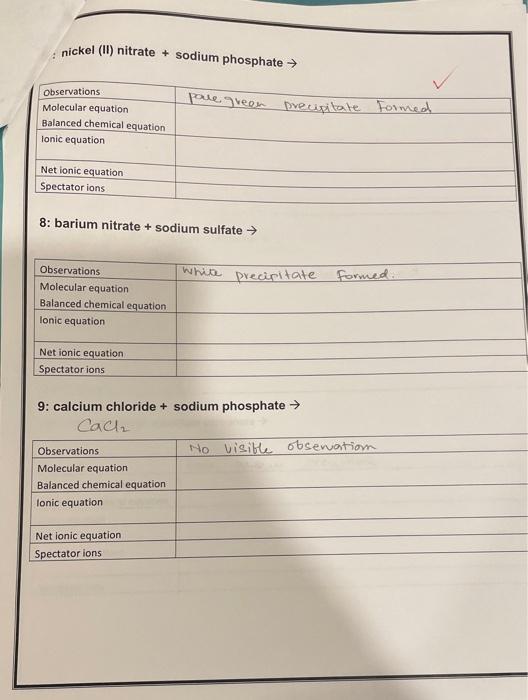 : nickel (II) nitrate + sodium phosphate →
Observations pale green precipitate formed
Molecular equation
Balanced chemical equation
Ionic equation
Net ionic equation
Spectator ions
8: barium nitrate + sodium sulfate →
Observations white precipitate formed.
Molecular equation
Balanced chemical equation
Ionic equation
Net ionic equation
Spectator ions
9: calcium chloride + sodium phosphate →
CaCl₂
Observations No visible observation
Molecular equation
Balanced chemical equation
Ionic equation
Net ionic equation
Spectator ions